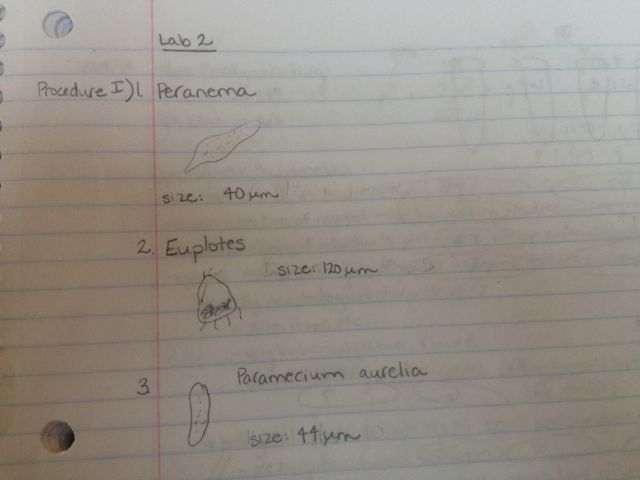 Lab 2
Procedure I) 1. Peranema
size: 40 µm
2. Euplotes
size: 120 µm
3. Paramecium aurelia
size: 44 µm